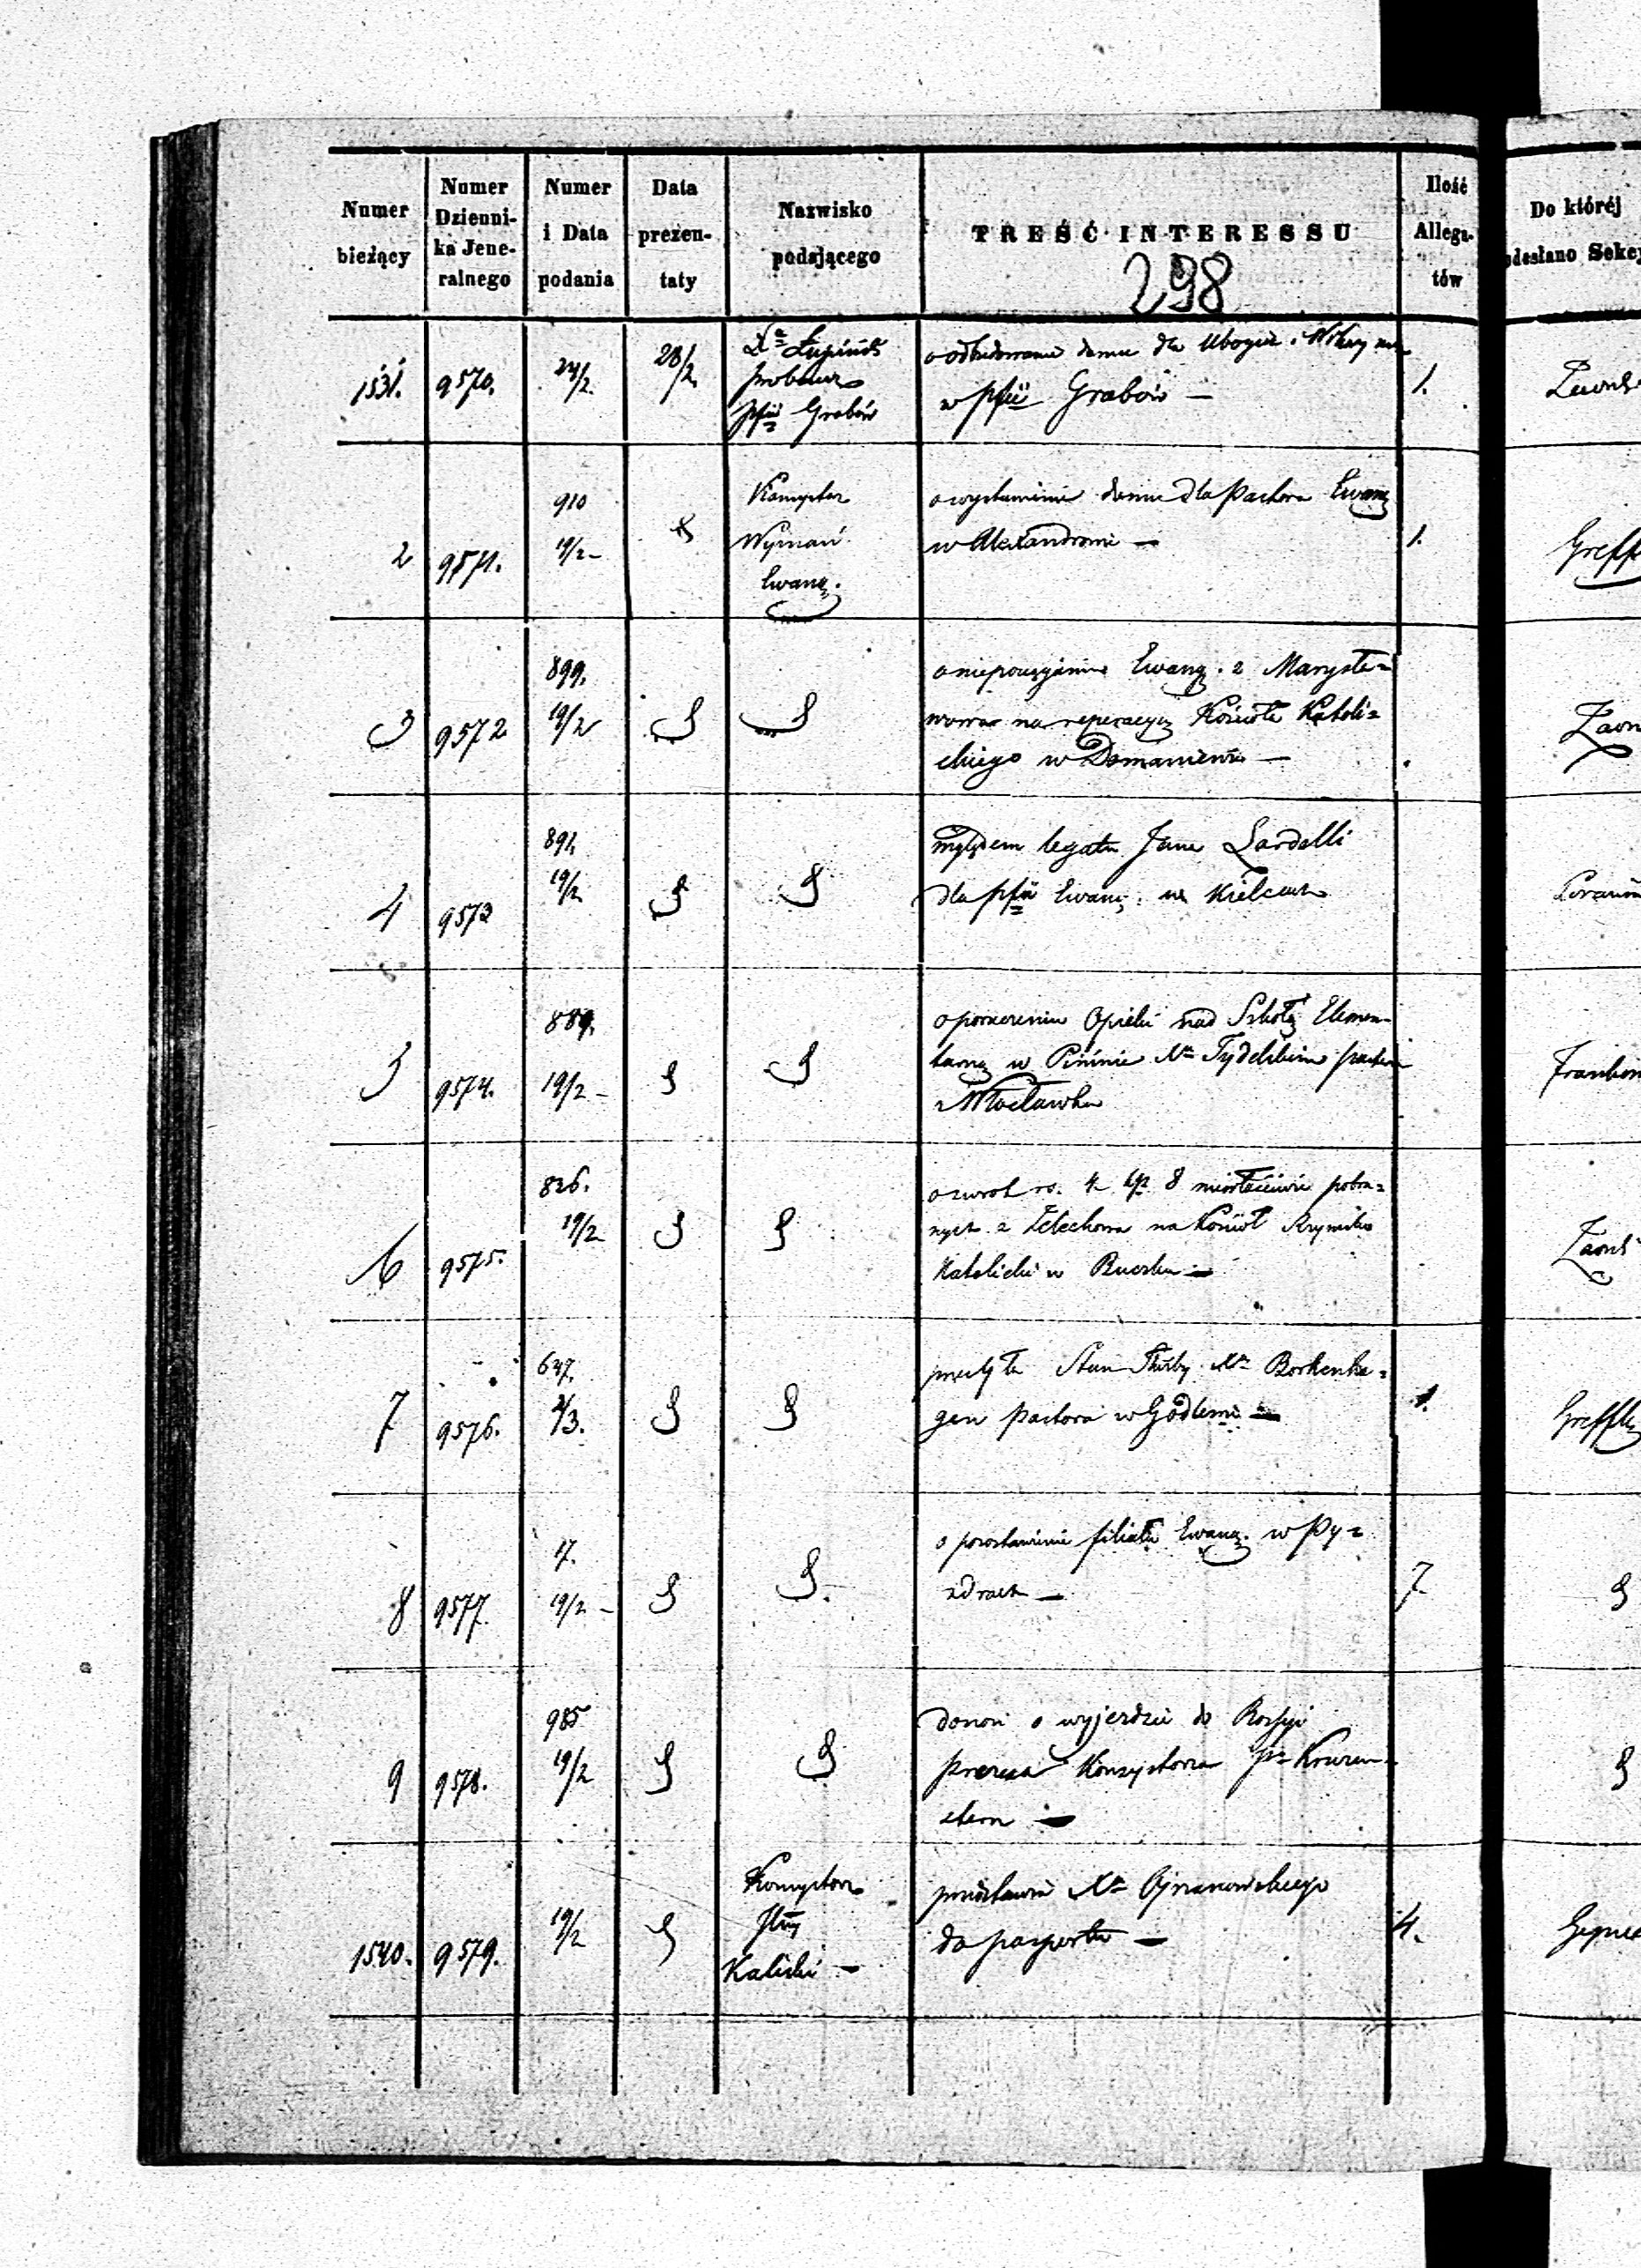 Numer bieżący
Numer Dzienni- ka Jene- ralnego
Numer i Data podania
Data prezen- taty
Nazwisko podającego
TREŚĆ INTERESSU
Ilość Allega- tów
Do któréj
298
1531. 9570. 24/2. 28/2
Xa Łupiński
probosz
pfii Grabów
o odbudowanie domu dla Ubogich i
w pfii Grabów — 1.
2 9571. 910 19/2 -
Konsystor
Wyznań
Ewang.
o wystawienie domu dla Pastora Ewang
w Alexandrowie — 1.
3 9572 899. 19/2
o niepociąganie Ewang. z Marysie=
wowa na reperacyą Kościoła Katoli=
ckiego w Domaniewie —
4 9573 891. 19/2
względem legatu Jana Lardelli
dla pfii Ewang. w Kielcach
5 9574. 889. 19/2 -
o poruczenie Opieki nad Szkołą Elemen=
tarną w Xu Tydelskiemu
z Włocławka
6 9575. 826. 19/2
o zwrot rs. 4 kp 8 niewłaściwie pobra=
nych z Żelechowa na Kościół Rzymsko
Katolicki w Buczku —
7 9576. 647. 2/3.
przesyła Stan Służby Xa Borkenha=
gen Pastora w Godlewie — 1.
8 9577. 17. 19/2 -
o pozostawienie filiału Ewang. w Py=
zdrach — 7.
9 9578. 985 19/2
donosi o wyjeździe do Rossyi
Prezesa Konsystorza
1540. 9579. 19/2
Konsystorz
Jlny
Kaliski —
przedstawia Xa
do paszportu — 4.